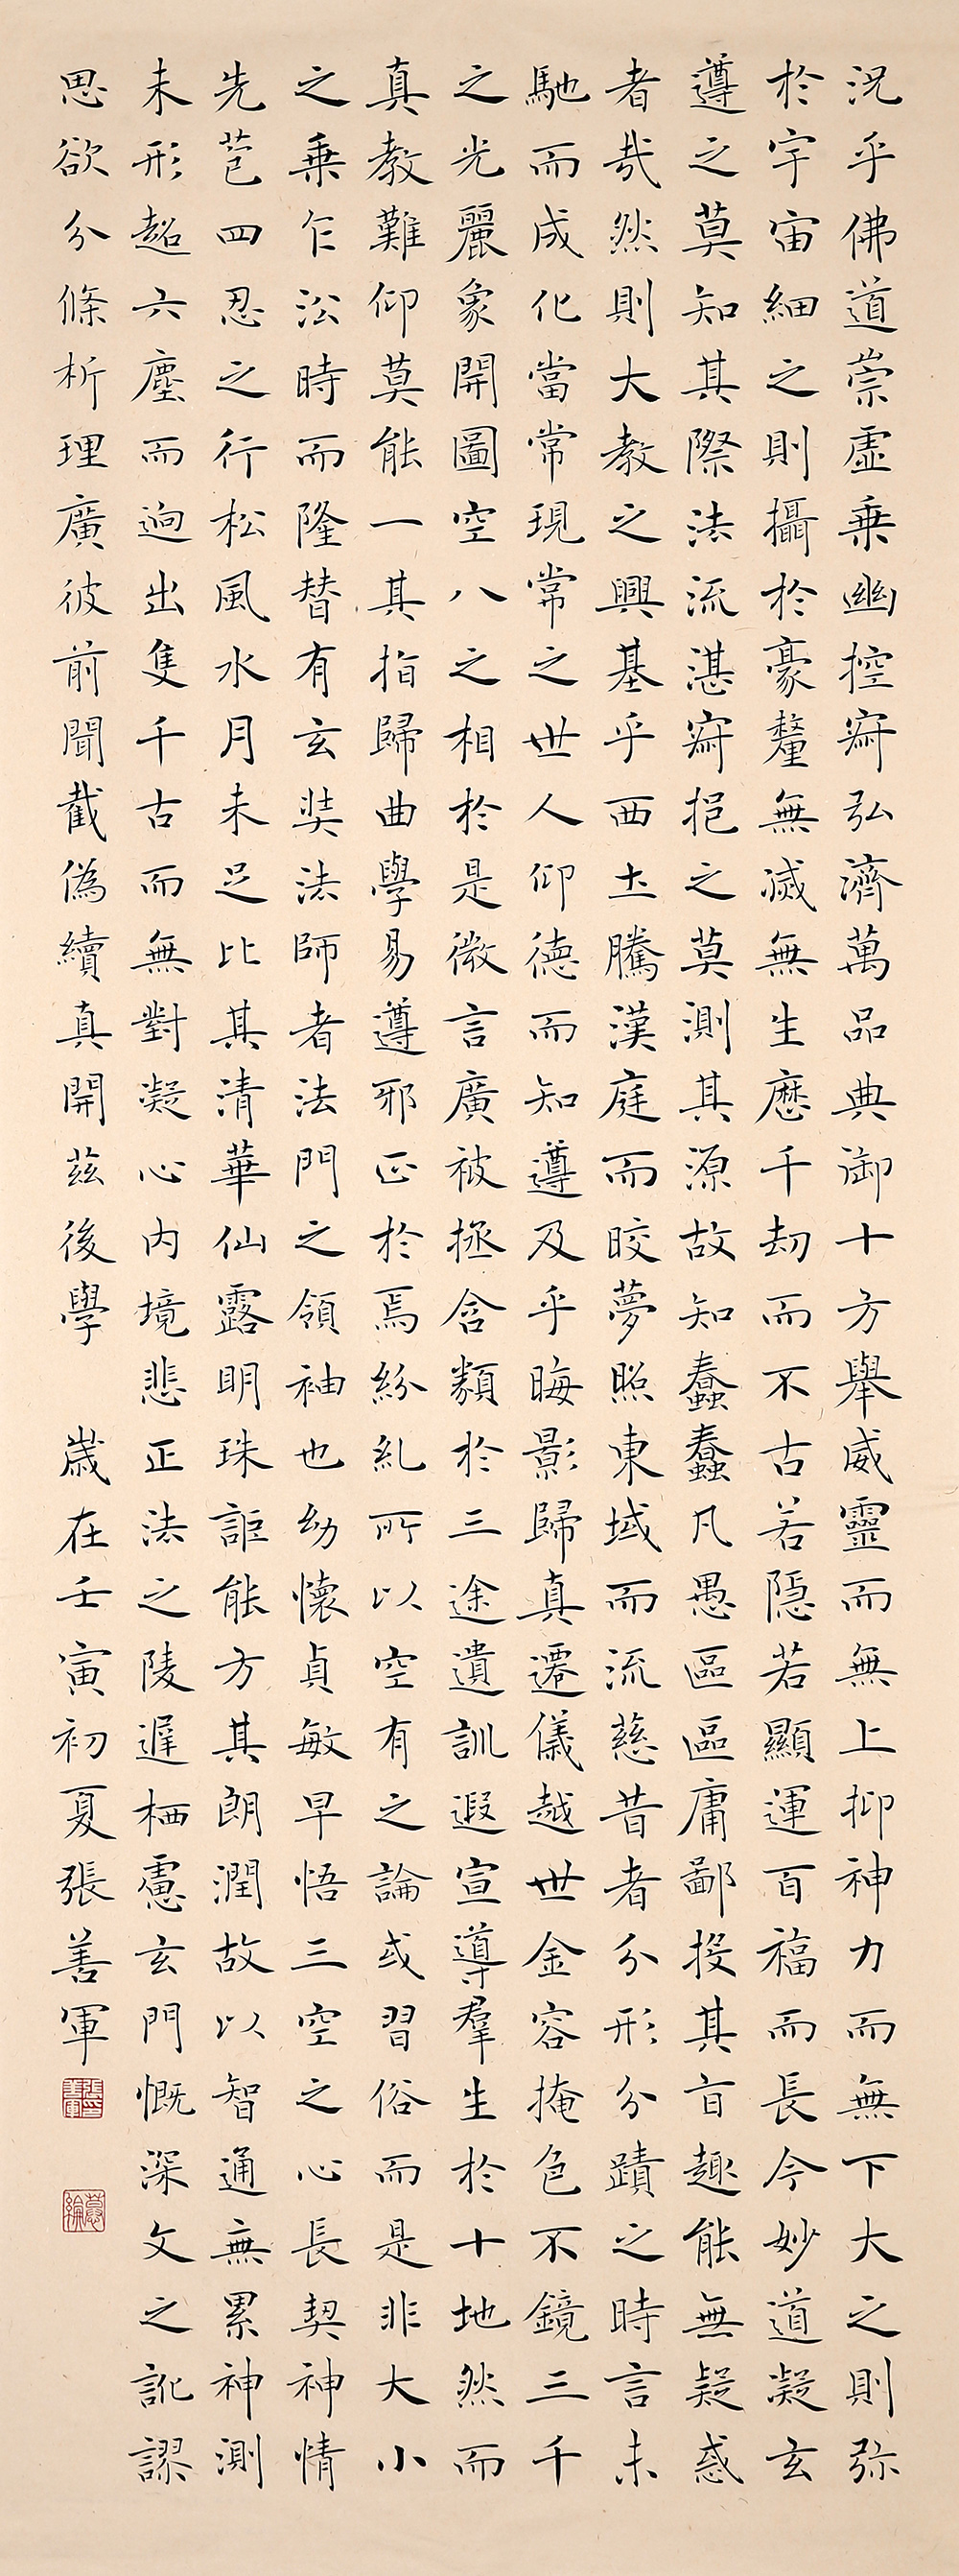 況乎佛道崇虛乘幽控寂弘濟萬品典御十方舉威靈而無上抑神力而無下大之則弥
於宇宙細之則攝於豪釐無滅無生歷千劫而不古若隱若顯運百福而長今妙道凝玄
遵之莫知其際法流湛寂挹之莫測其源故知蠢蠢凡愚區區庸鄙投其旨趣能無疑惑
者哉然則大教之興基乎西土騰漢庭而皎夢照東域而流慈昔者分形分蹟之時言未
馳而成化當常現常之世人仰德而知遵及乎晦影歸真遷儀越世金容掩色不鏡三千
之光麗象開圖空八之相於是微言廣被拯含類於三途遺訓遐宣導羣生於十地然而
真教難仰莫能一其指歸曲學易遵邪正於焉紛糺所以空有之論或習俗而是非大小
之乘乍沿時而隆替有玄奘法師者法門之領袖也幼懷貞敏早悟三空之心長契神情
先苞四忍之行松風水月未足比其清華仙露明珠詎能方其朗潤故以智通無累神測
未形超六塵而迥出隻千古而無對凝心內境悲正法之陵遲栖慮玄門慨深文之訛謬
思欲分條析理廣彼前聞截偽續真開茲後學 歲在壬寅初夏張善軍